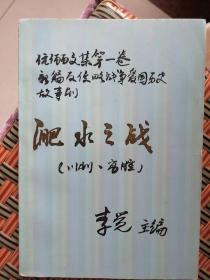 伉俪文集第一卷
新编反侵略战争爱国历史
故事剧
淝水之战
(川剧、高腔)
李觉 主编